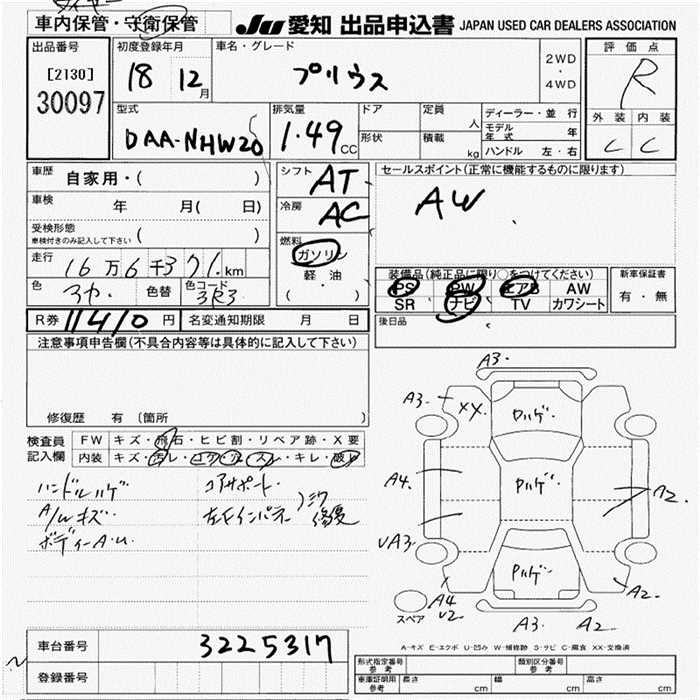 車内保管・守衛保管
JU 愛知 出品申込書 JAPAN USED CAR DEALERS ASSOCIATION
出品番号
[2130]
30097
初度登録年月
18 12月
車名・グレード
プリウス
2WD
・
4WD
評価点
R
外装 内装
C C
型式
DAA-NHW20
排気量
1.49cc
ドア
形状
定員 人
積載 kg
ディーラー・並行
モデル年式 年
ハンドル 左・右
車歴 自家用・( )
車検 年 月( 日)
受検形態
車検付きのみ記入して下さい ( )
走行 16万6千371km
色 色替 色コード 3R3
シフト AT
冷房 AC
燃料
ガソリン
軽油
( ・ )
セールスポイント(正常に機能するものに限ります)
AW
装備品(純正品に限り○をつけてください)
PS PW エアB AW
SR ナビ TV カワシート
新車保証書
有・無
後日品
R券 11410円 名変通知期限 月 日
注意事項申告欄(不具合内容等は具体的に記入して下さい)
修復歴 有〔箇所 〕
検査員記入欄
FW キズ・飛石・ヒビ割・リペア跡・X要
内装 キズ・汚レ・コゲ・穴・スレ・キレ・破レ
ハンドルハゲ
A/Wキズ
ボディーA.U.
コアサポート
左右インパネ
修復
A3.
A3.
XX.
ハゲ
A4.
ハゲ
A2.
UA3.
ハゲ
A4
U2
A2.
スペア
A3 A2
A-キズ E-エクボ U-凹み W-補修跡 S-サビ C-腐食 XX-交換済
車台番号 3225317
登録番号
形式指定番号 参考
類別区分番号 参考
車庫証明用参考 長さ cm 幅 cm 高さ cm